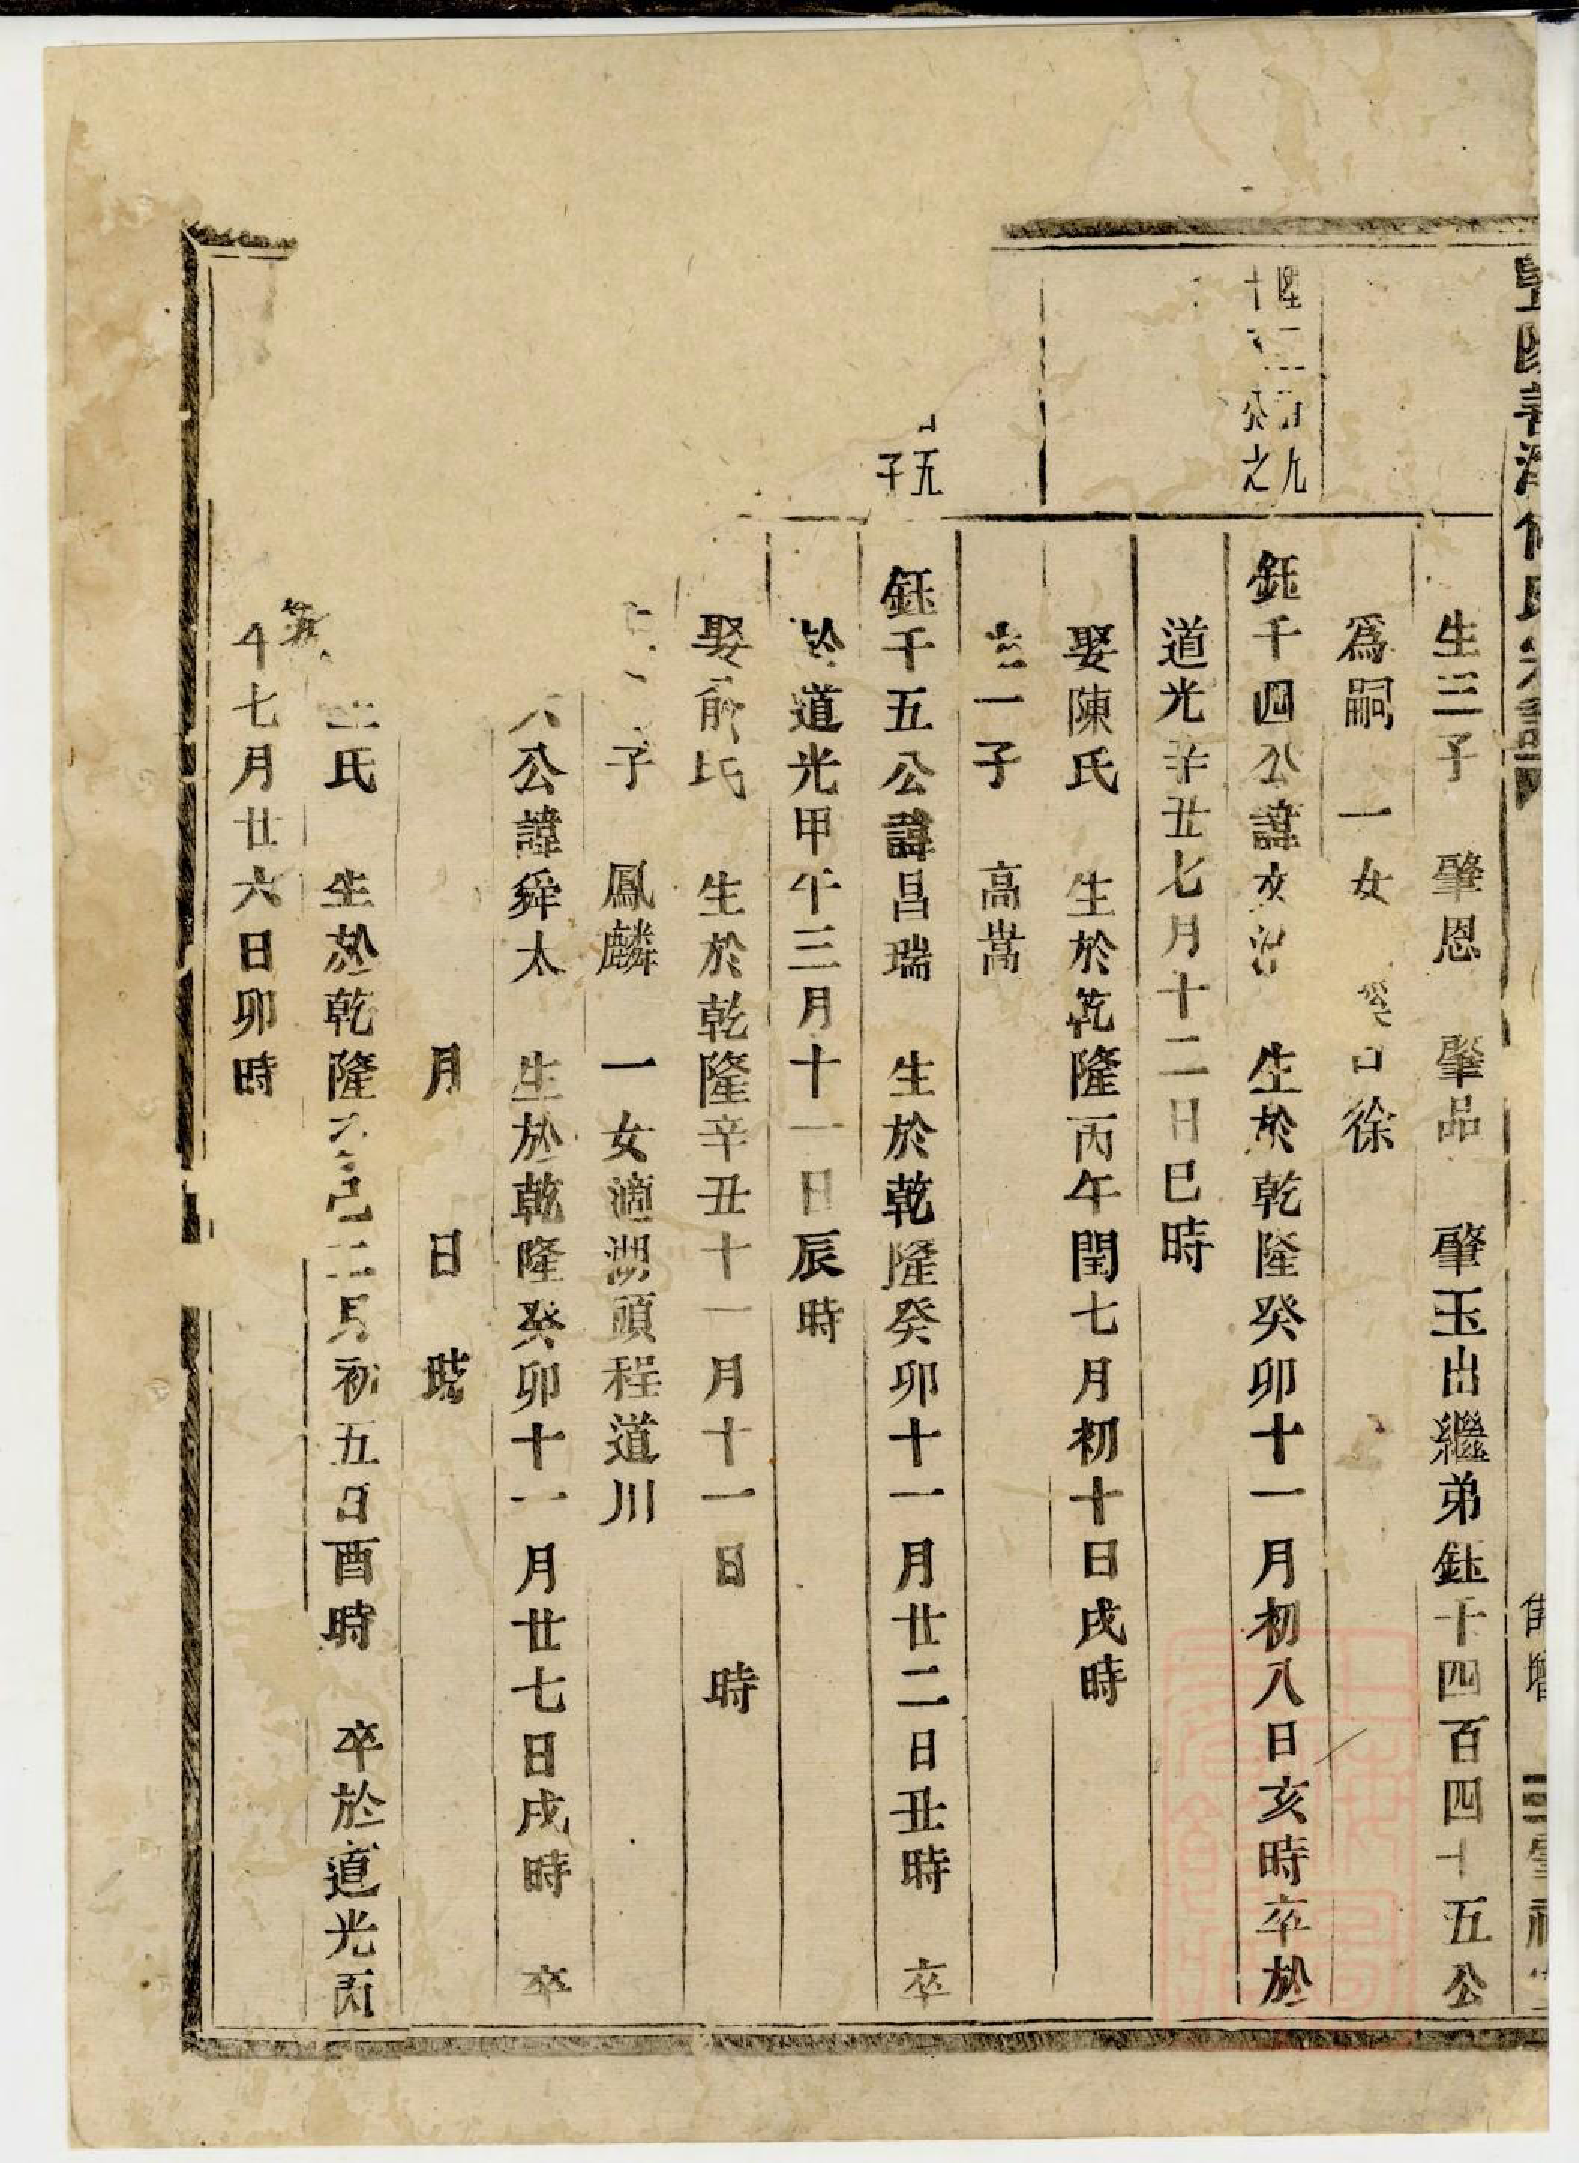 生三子　肇恩　肇品　肇玉出繼弟鈺千四百四十五公
爲嗣　一女　徐
九
公之
鈺千四公諱文　生於乾隆癸卯十一月初八日亥時卒於
道光辛丑七月十二日巳時
娶陳氏　生於乾隆丙午閏七月初十日戌時
一子　高嵩
五
子
鈺千五公諱昌瑞　生於乾隆癸卯十一月廿二日丑時　卒
於道光甲午三月十一日辰時
娶俞氏　生於乾隆辛丑十一月十一日　時
子　鳳麟　一女適湖頭程道川
六公諱舜太　生於乾隆癸卯十一月廿七日戌時　卒
月　日　時
氏　生於乾隆　己二月初五日酉時　卒於道光丙
午七月廿六日卯時